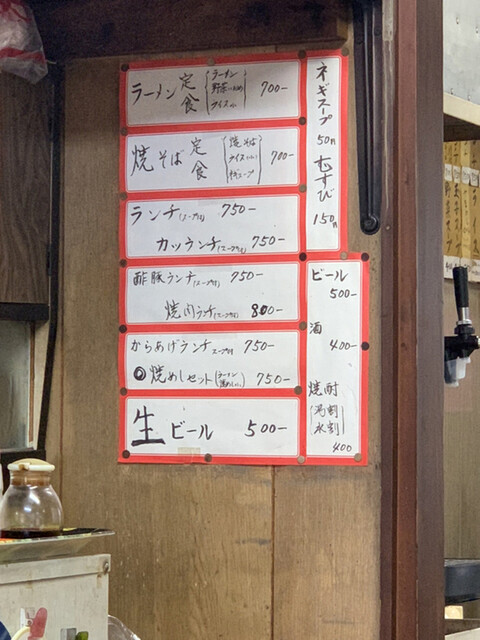 ラーメン定食(ラーメン 野菜いため ライス(小)) 700-
焼そば定食(焼そば ライス(小) ネギスープ) 700-
ランチ(スープ付) 750-
カツランチ(スープ付) 750-
酢豚ランチ(スープ付) 750-
焼肉ランチ(スープ付) 800-
からあげランチ スープ付 750-
◎焼めしセット(ラーメン 焼めし(小)) 750-
生ビール 500-
ネギスープ 50円
むすび 150円
ビール 500-
酒 400-
焼酎(湯割 水割) 400